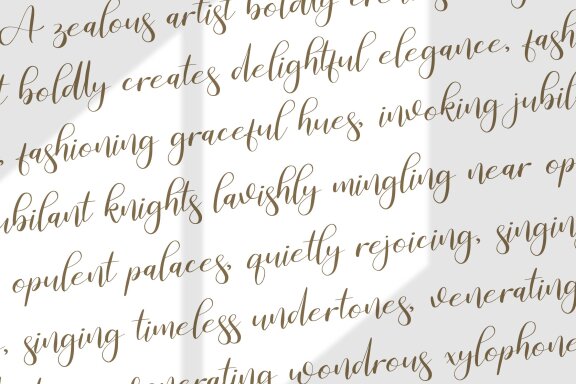 A zealous artist boldly
t boldly creates delightful elegance, fash
, fashioning graceful hues, invoking jubil
ubilant knights lavishly mingling near op
opulent palaces, quietly rejoicing, singing
, singing timeless undertones, venerating
wondrous xylophone